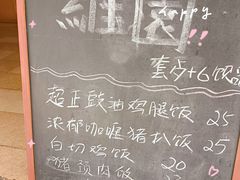 happy
套歺+6饭
超正豉油鸡腿饭 25
浓郁咖喱猪扒饭 25
白切鸡饭 20
猪颈肉饭